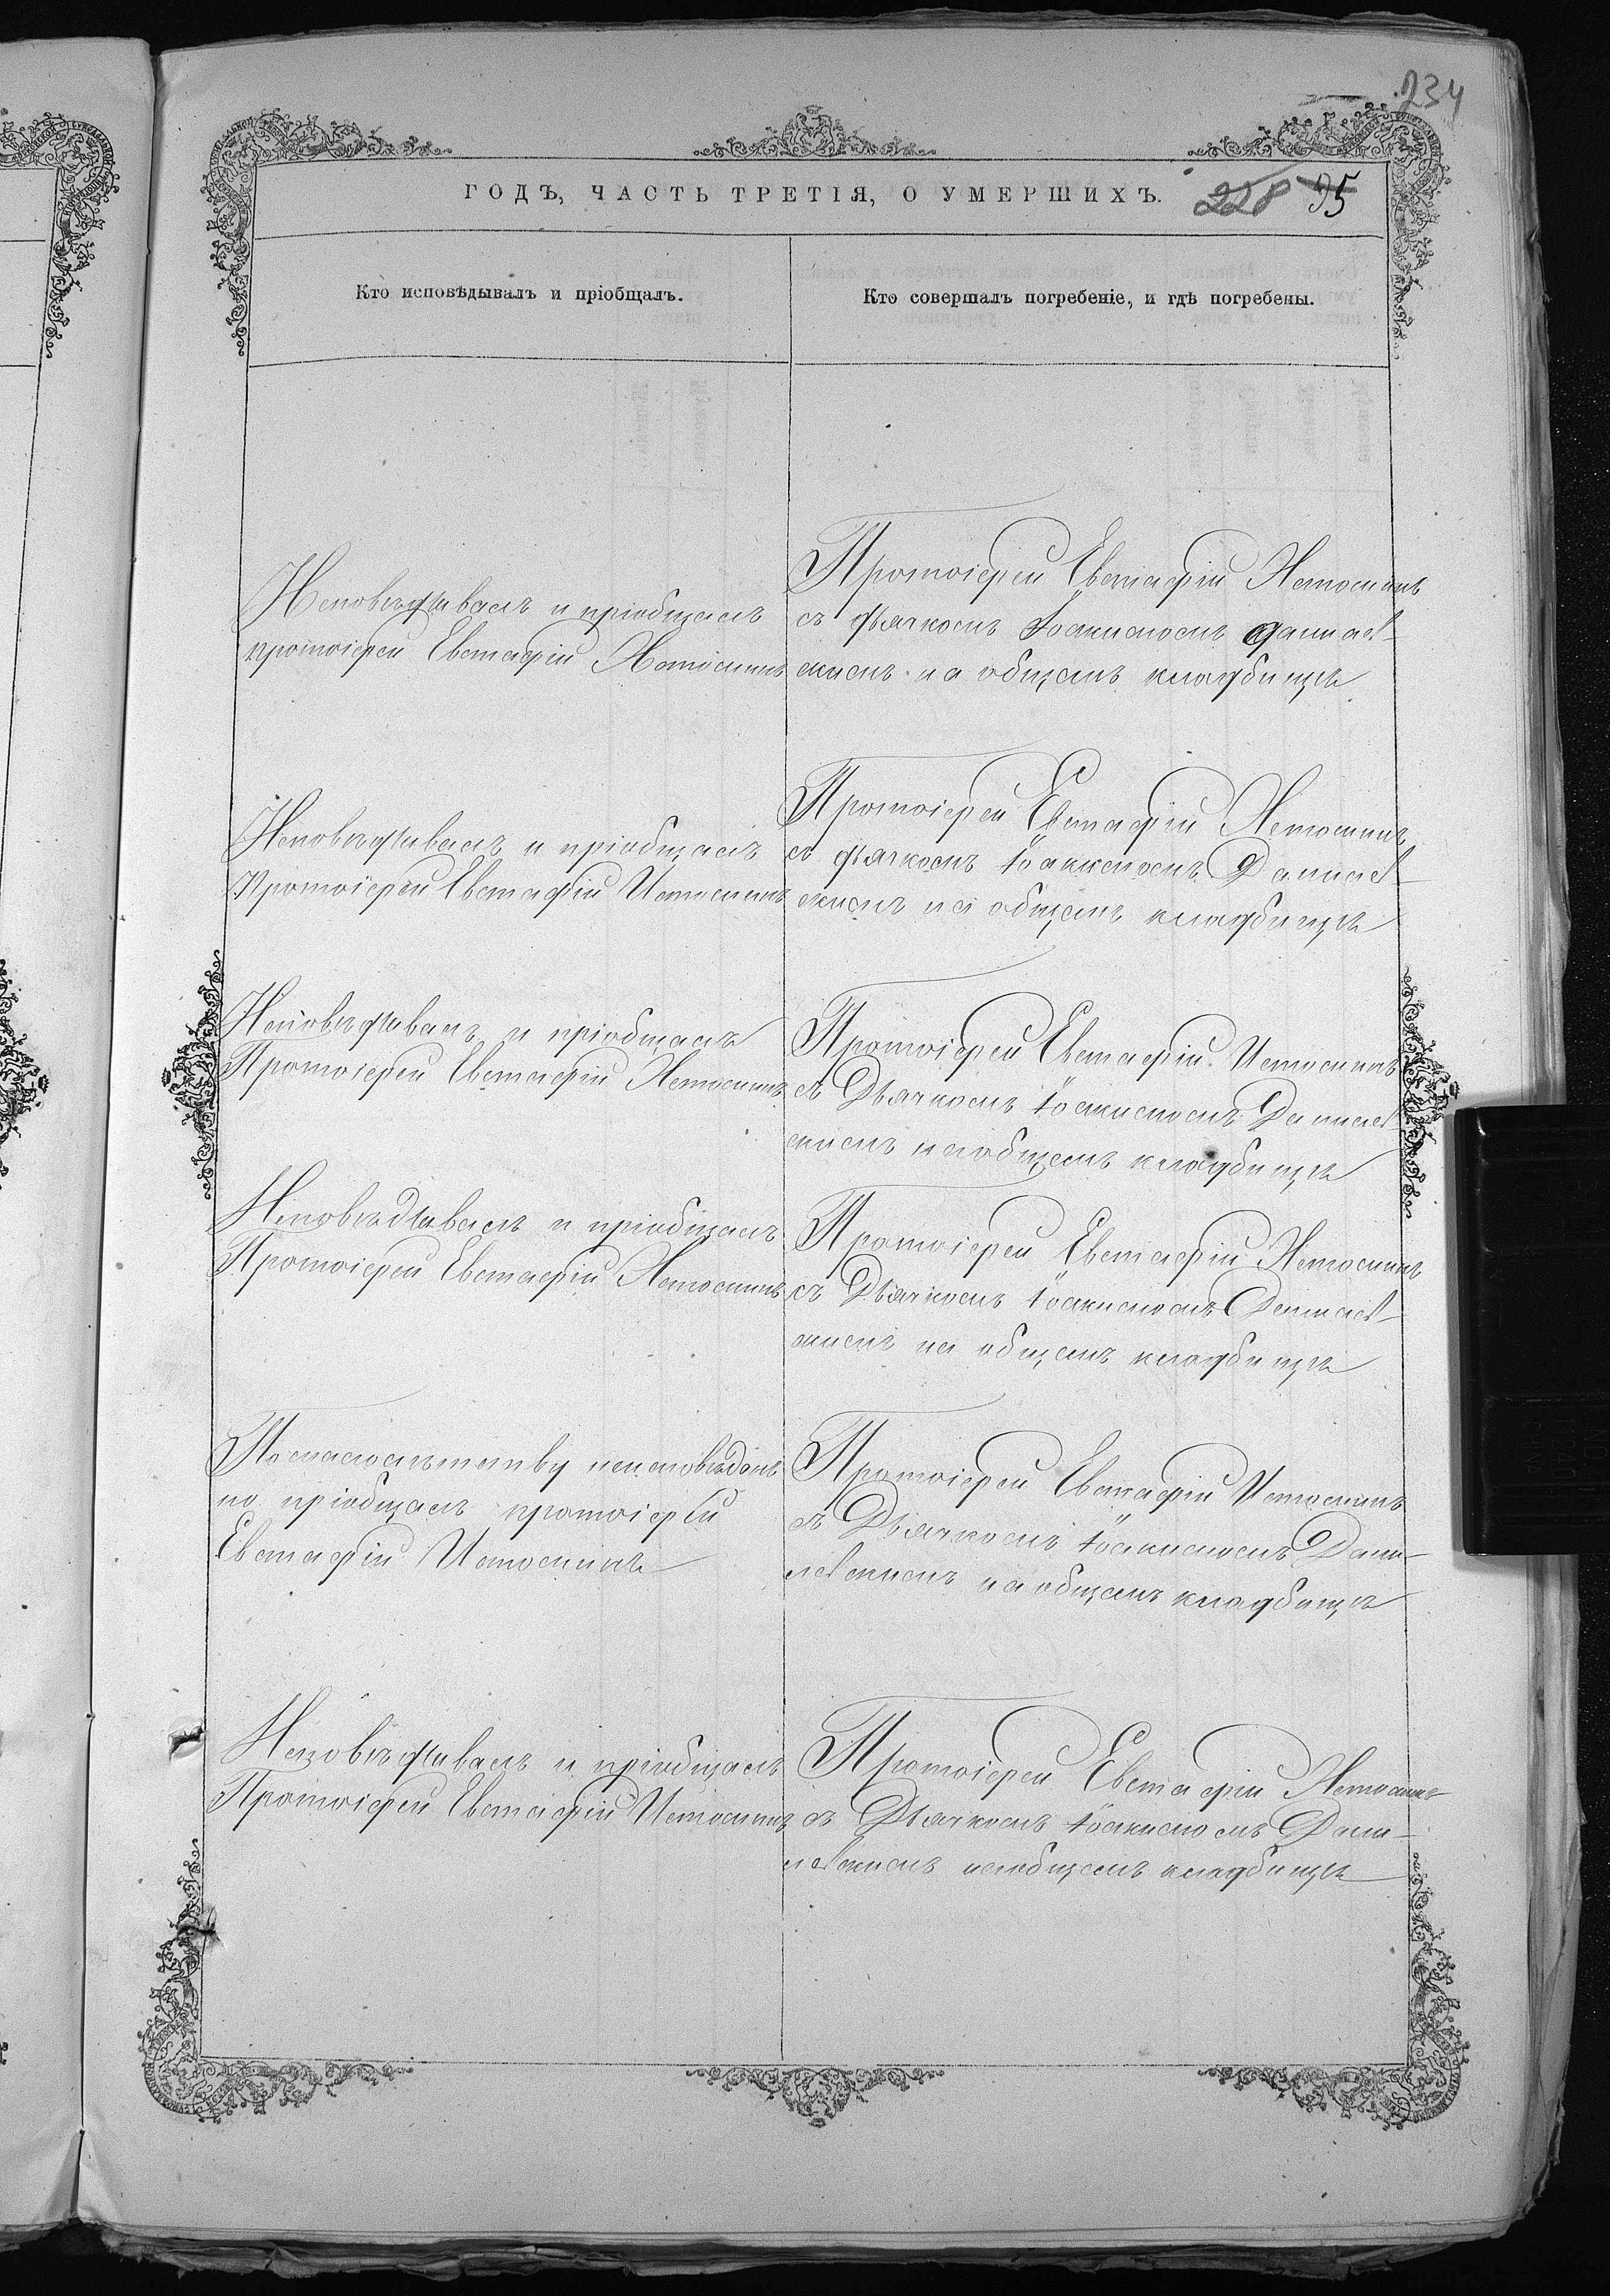 234
ГОДЪ, ЧАСТЬ ТРЕТІЯ, О УМЕРШИХЪ.
228 95
Кто исповѣдывалъ и пріобщалъ.
Кто совершалъ погребеніе, и гдѣ погребены.
Исповѣдывалъ и пріобщалъ
протоіерей Евстафій Истоминъ
Протоіерей Евстафій Истоминъ
съ дьячкомъ Іоакимомъ Данилев-
скимъ на общемъ кладбищѣ
Исповѣдывалъ и пріобщалъ
Протоіерей Евстафій Истоминъ
Протоіерей Евстафій Истоминъ
съ дьячкомъ Іоакимомъ Данилев-
скимъ на общемъ кладбищѣ
Исповѣдывалъ и пріобщалъ
Протоіерей Евстафій Истоминъ
Протоіерей Евстафій Истоминъ
съ Дьячкомъ Іоакимомъ Данилев-
скимъ на общемъ кладбищѣ
Исповѣдывалъ и пріобщалъ
Протоіерей Евстафій Истоминъ
Протоіерей Евстафій Истоминъ
съ Дьячкомъ Іоакимомъ Данилев-
скимъ на общемъ кладбищѣ
По малолѣтству неисповѣданъ
но пріобщалъ протоіерей
Евстафій Истоминъ
Протоіерей Евстафій Истоминъ
съ Дьячкомъ Іоакимомъ Дани-
левскимъ на общемъ кладбищѣ
Исповѣдывалъ и пріобщалъ
Протоіерей Евстафій Истоминъ
Протоіерей Евстафій Истоминъ
съ Дьячкомъ Іоакимомъ Дани-
левскимъ на общемъ кладбищѣ